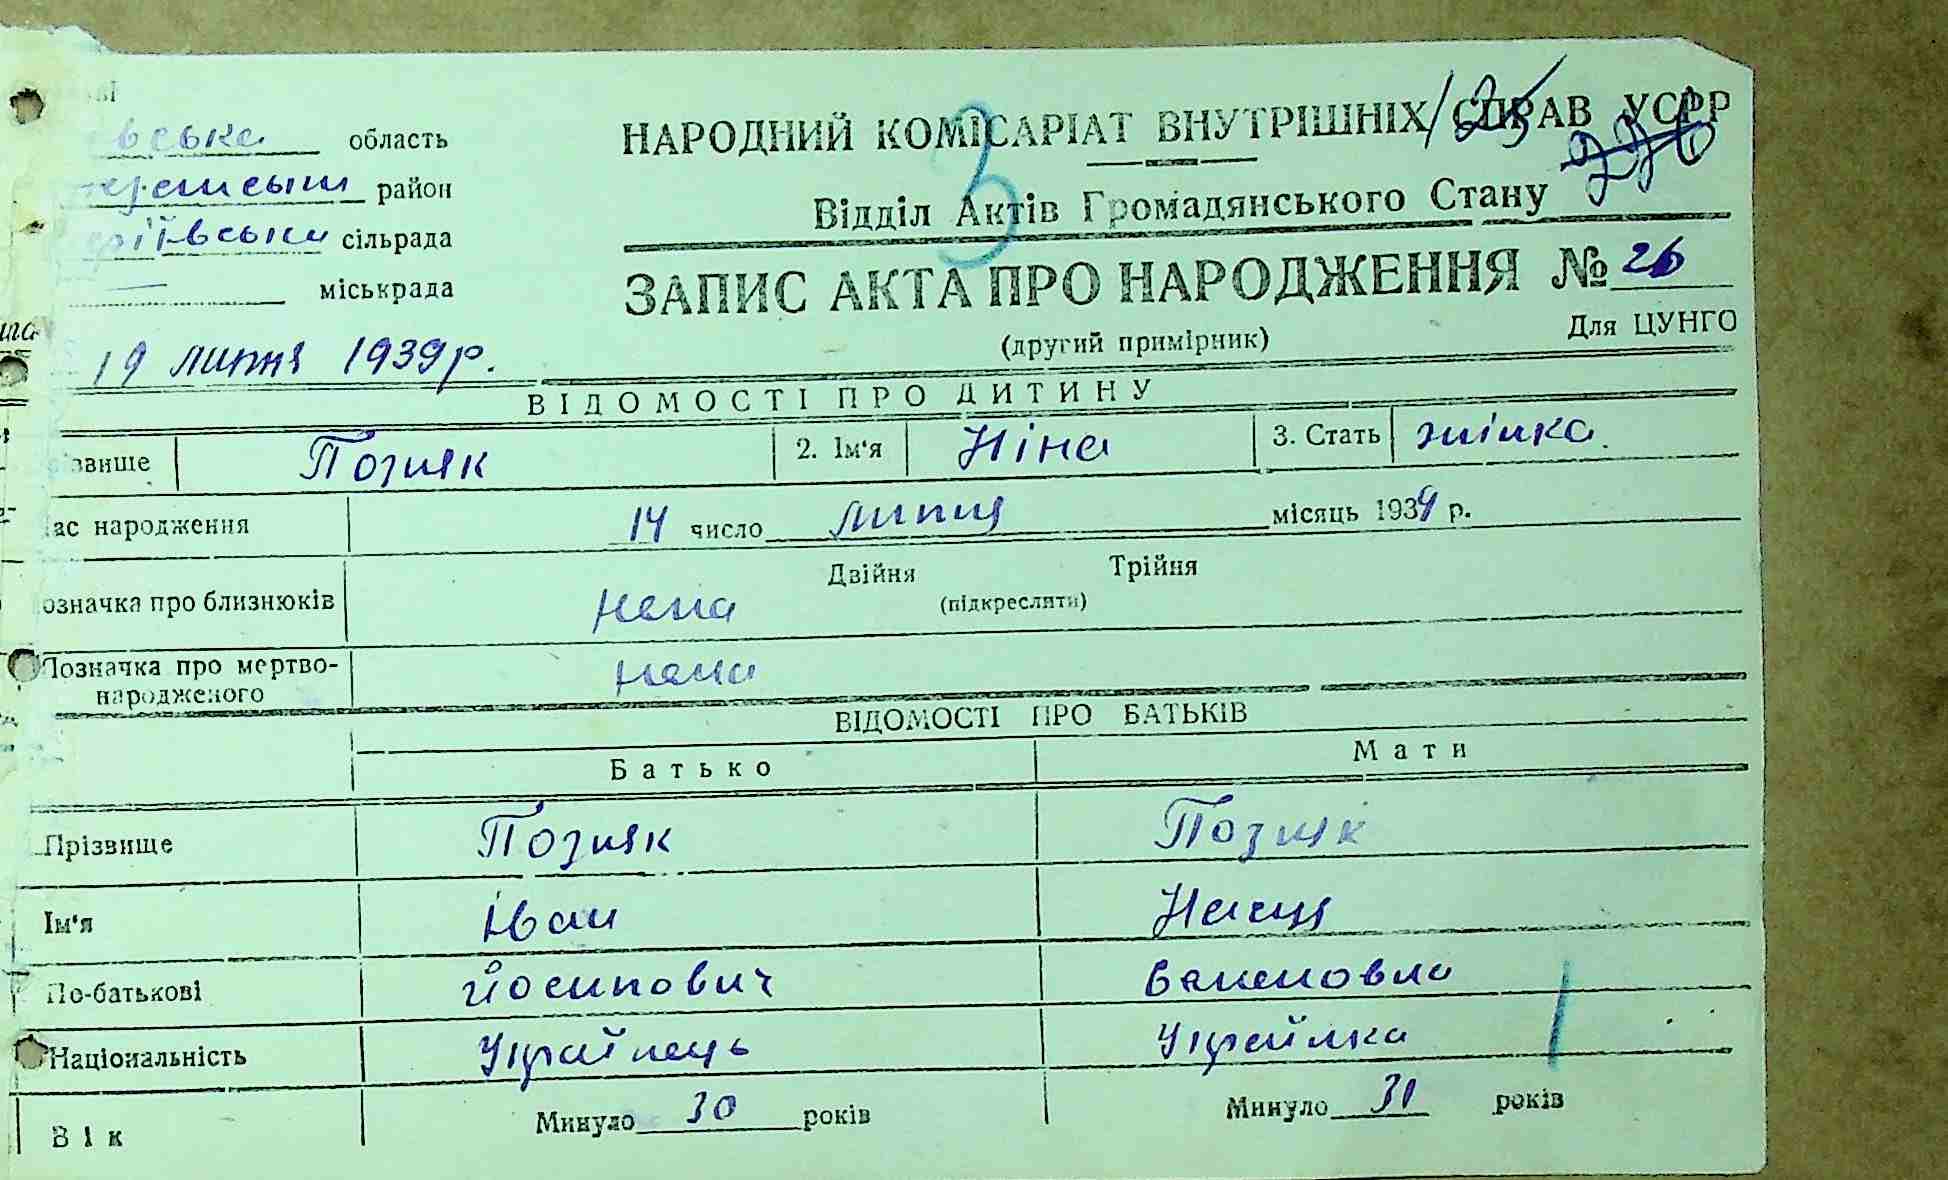 вська область
район
ївська сільрада
міськрада
19 липня 1939 р.
НАРОДНИЙ КОМІСАРІАТ ВНУТРІШНІХ СПРАВ УСРР
3
25
226
Відділ Актів Громадянського Стану
ЗАПИС АКТА ПРО НАРОДЖЕННЯ № 26
(другий примірник)
Для ЦУНГО
ВІДОМОСТІ ПРО ДИТИНУ
ізвище Позняк 2. Ім'я Ніна 3. Стать жінка
ас народження 14 число липня місяць 1939 р.
Двійня Трійня
означка про близнюків нема (підкреслити)
Позначка про мертво-
народженого нема
ВІДОМОСТІ ПРО БАТЬКІВ
Батько Мати
Прізвище Позняк Позняк
Ім'я Іван
По-батькові Йосипович
Національність Українець Українка
Вік Минуло 30 років Минуло 31 років